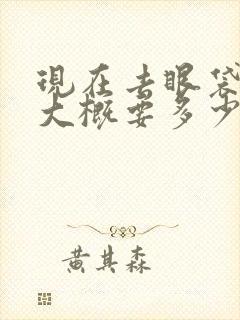 現在去眼袋
大概要多少
黄其森